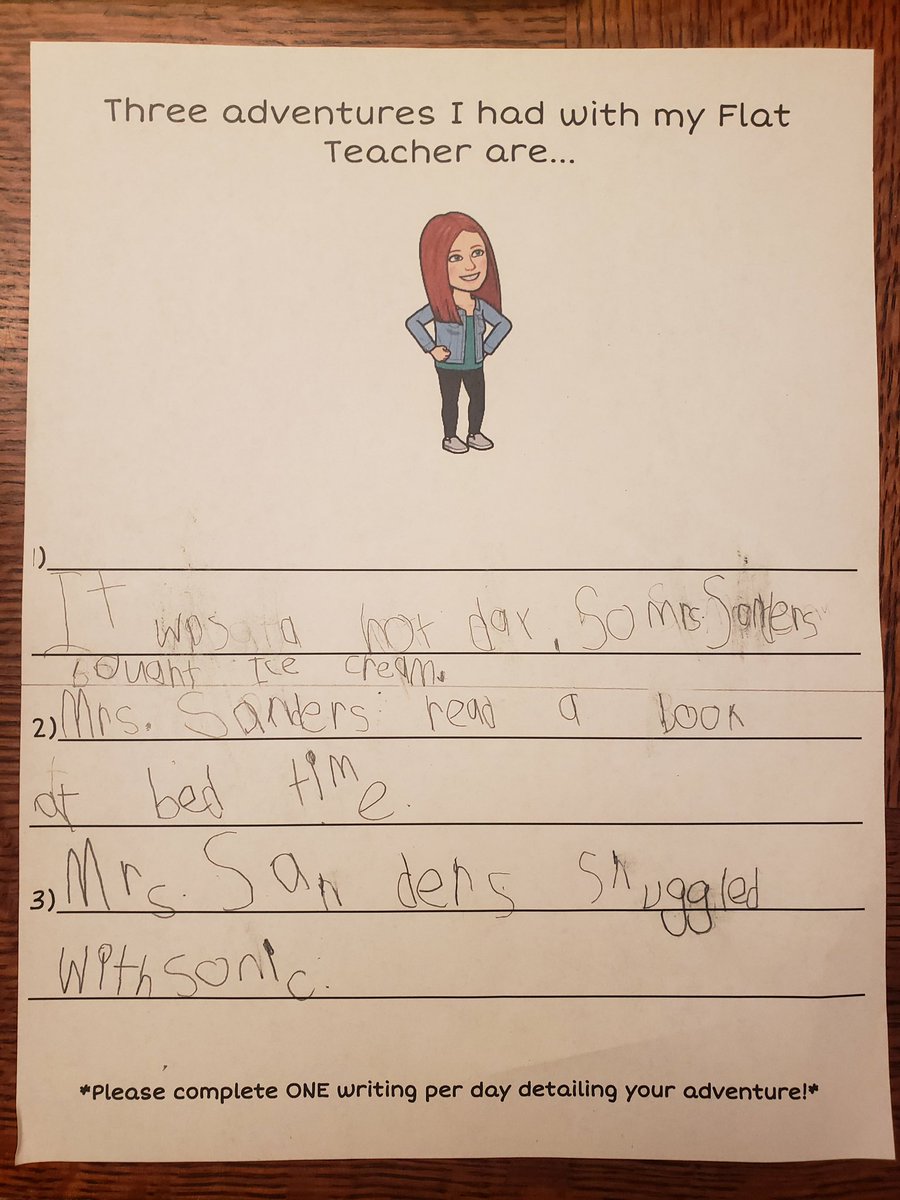 Three adventures I had with my Flat
Teacher are...
1)
It was a hot day. So Mrs. Sanders
bought Ice cream.
2) Mrs. Sanders read a book
at bed time.
3) Mrs. Sanders snuggled
with sonic.
*Please complete ONE writing per day detailing your adventure!*